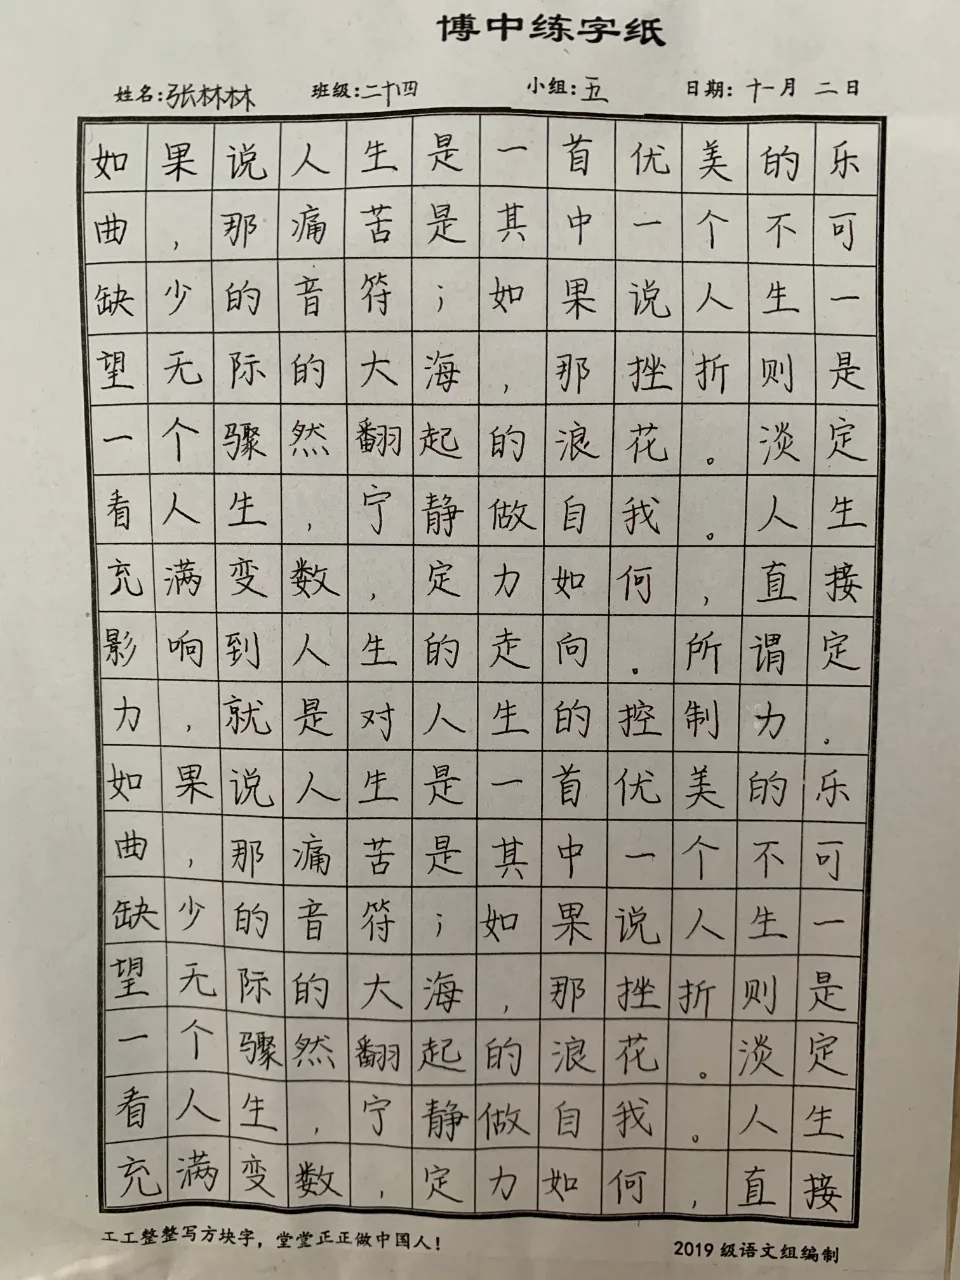 博中练字纸
姓名:张林林 班级:二十四 小组:五 日期:十一月二日
如果说人生是一首优美的乐
曲，那痛苦是其中一个不可
缺少的音符；如果说人生一
望无际的大海，那挫折则是
一个骤然翻起的浪花。淡定
看人生，宁静做自我。人生
充满变数，定力如何，直接
影响到人生的走向。所谓定
力，就是对人生的控制力。
如果说人生是一首优美的乐
曲，那痛苦是其中一个不可
缺少的音符；如果说人生一
望无际的大海，那挫折则是
一个骤然翻起的浪花。淡定
看人生，宁静做自我。人生
充满变数，定力如何，直接
工工整整写方块字，堂堂正正做中国人！
2019级语文组编制